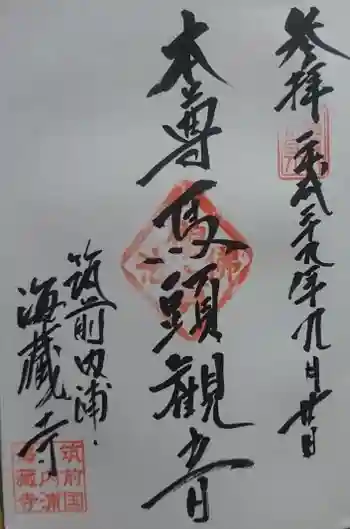 参拝
平成二十九年九月廿日
本尊馬頭觀音
筑前内浦
海蔵寺
筑前国
内浦
海蔵寺